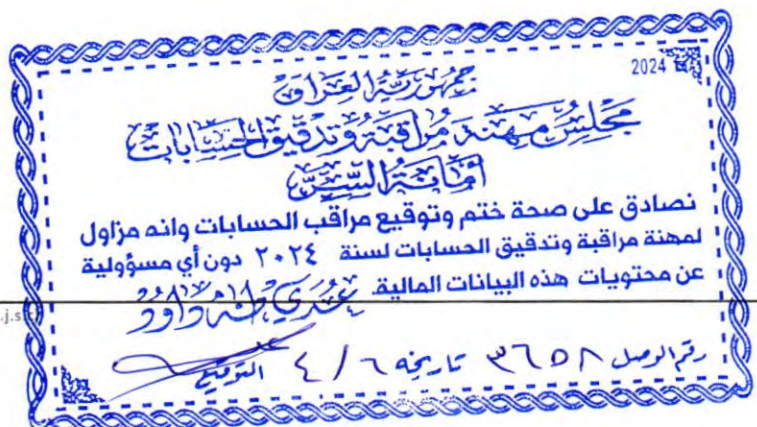 2024
جمهورية العراق
مجلس مهنة مراقبة وتدقيق الحسابات
أمانة السر
نصادق على صحة ختم وتوقيع مراقب الحسابات وانه مزاول
لمهنة مراقبة وتدقيق الحسابات لسنة ٢٠٢٤ دون أي مسؤولية
عن محتويات هذه البيانات المالية.
عدي طه داود
رقم الوصل ٣٦٥٨ تاريخه ٦ / ٤ التوقيع